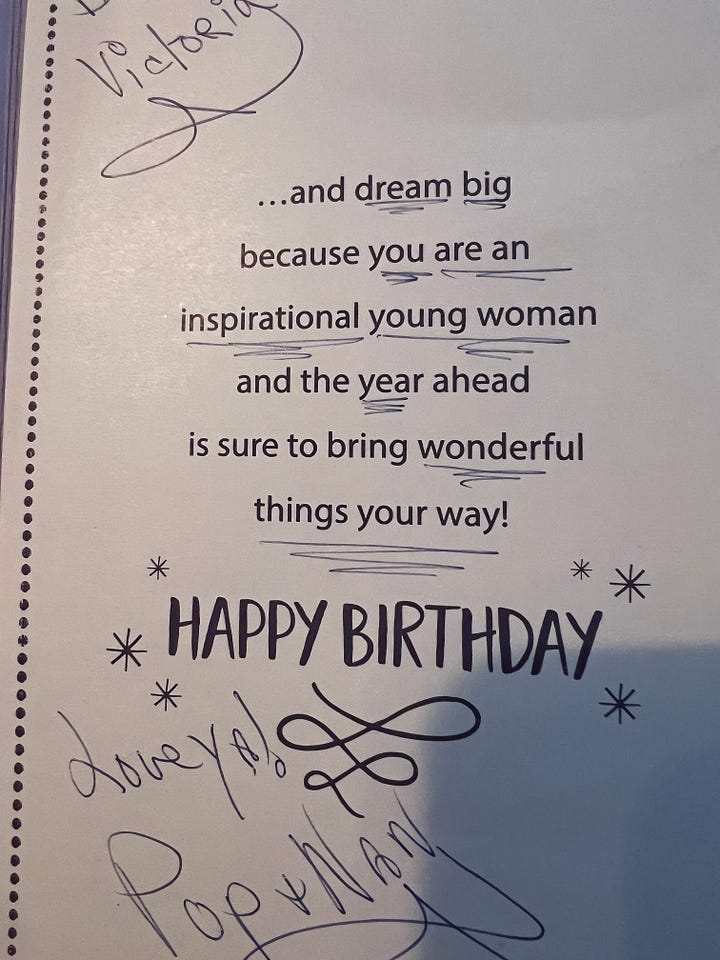 Victoria
...and dream big
because you are an
inspirational young woman
and the year ahead
is sure to bring wonderful
things your way!
HAPPY BIRTHDAY
Love Ya!
Pop & Nan